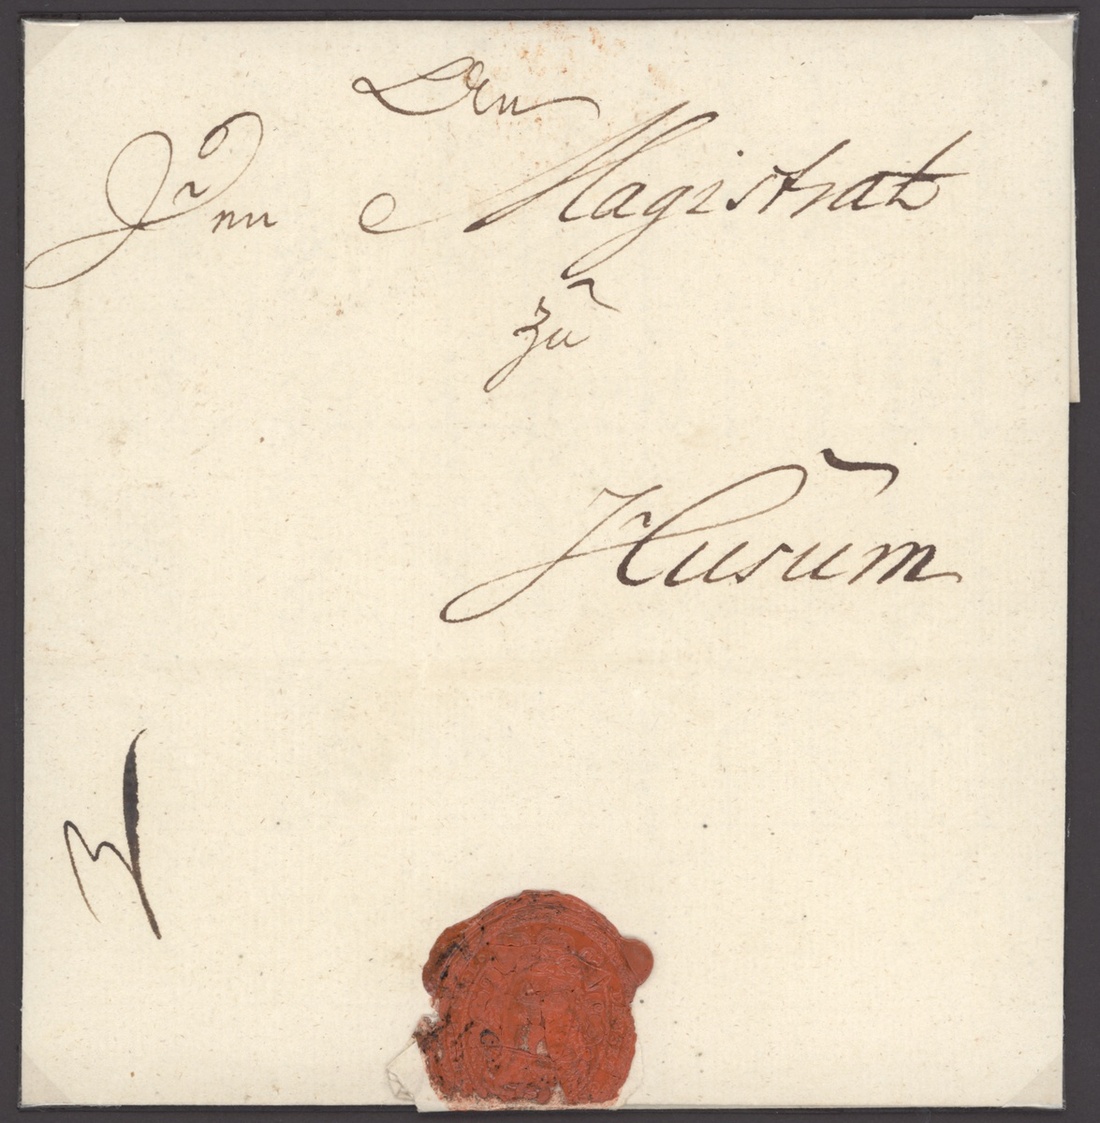 Den
Magistrat
zu
Husum